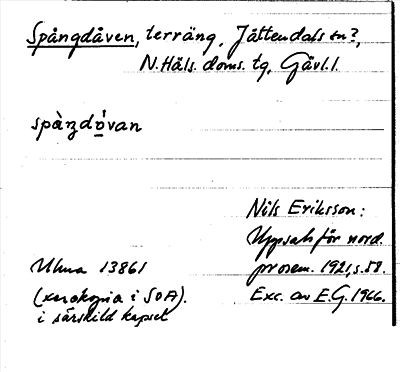 Spångdåven, terräng, Jättendals sn?,
N. Häls. doms. tg, Gävl. l.
spàŋdó̱van
Nils Eriksson:
Uppsats för nord.
Ulua 13861 prosem. 1921, s. 58.
(xerokopia i SOA). Exc. av E.G. 1966.
i särskild kapsel